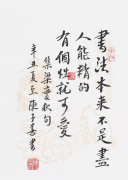 書法本來不是盡
人能精的
有個性就可愛
梁實秋句
辛丑夏至 陳子善書